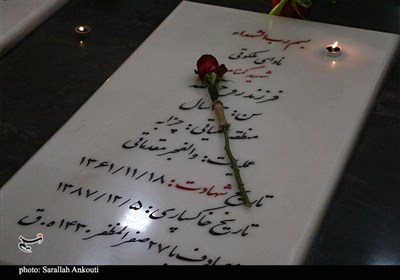 بسم رب الشهداء
شهید گمنام
فرزند: روح
سن: سال
منطقه عملیاتی: چزابه
عملیات: والفجر مقدماتی
تاریخ شهادت: ۱۳۶۱/۱۱/۱۸
تاریخ خاکسپاری: ۱۳۸۷/۱۲/۵
مصادف با ۲۷ صفر المظفر ۱۴۳۰ ه.ق
photo: Sarallah Ankouti